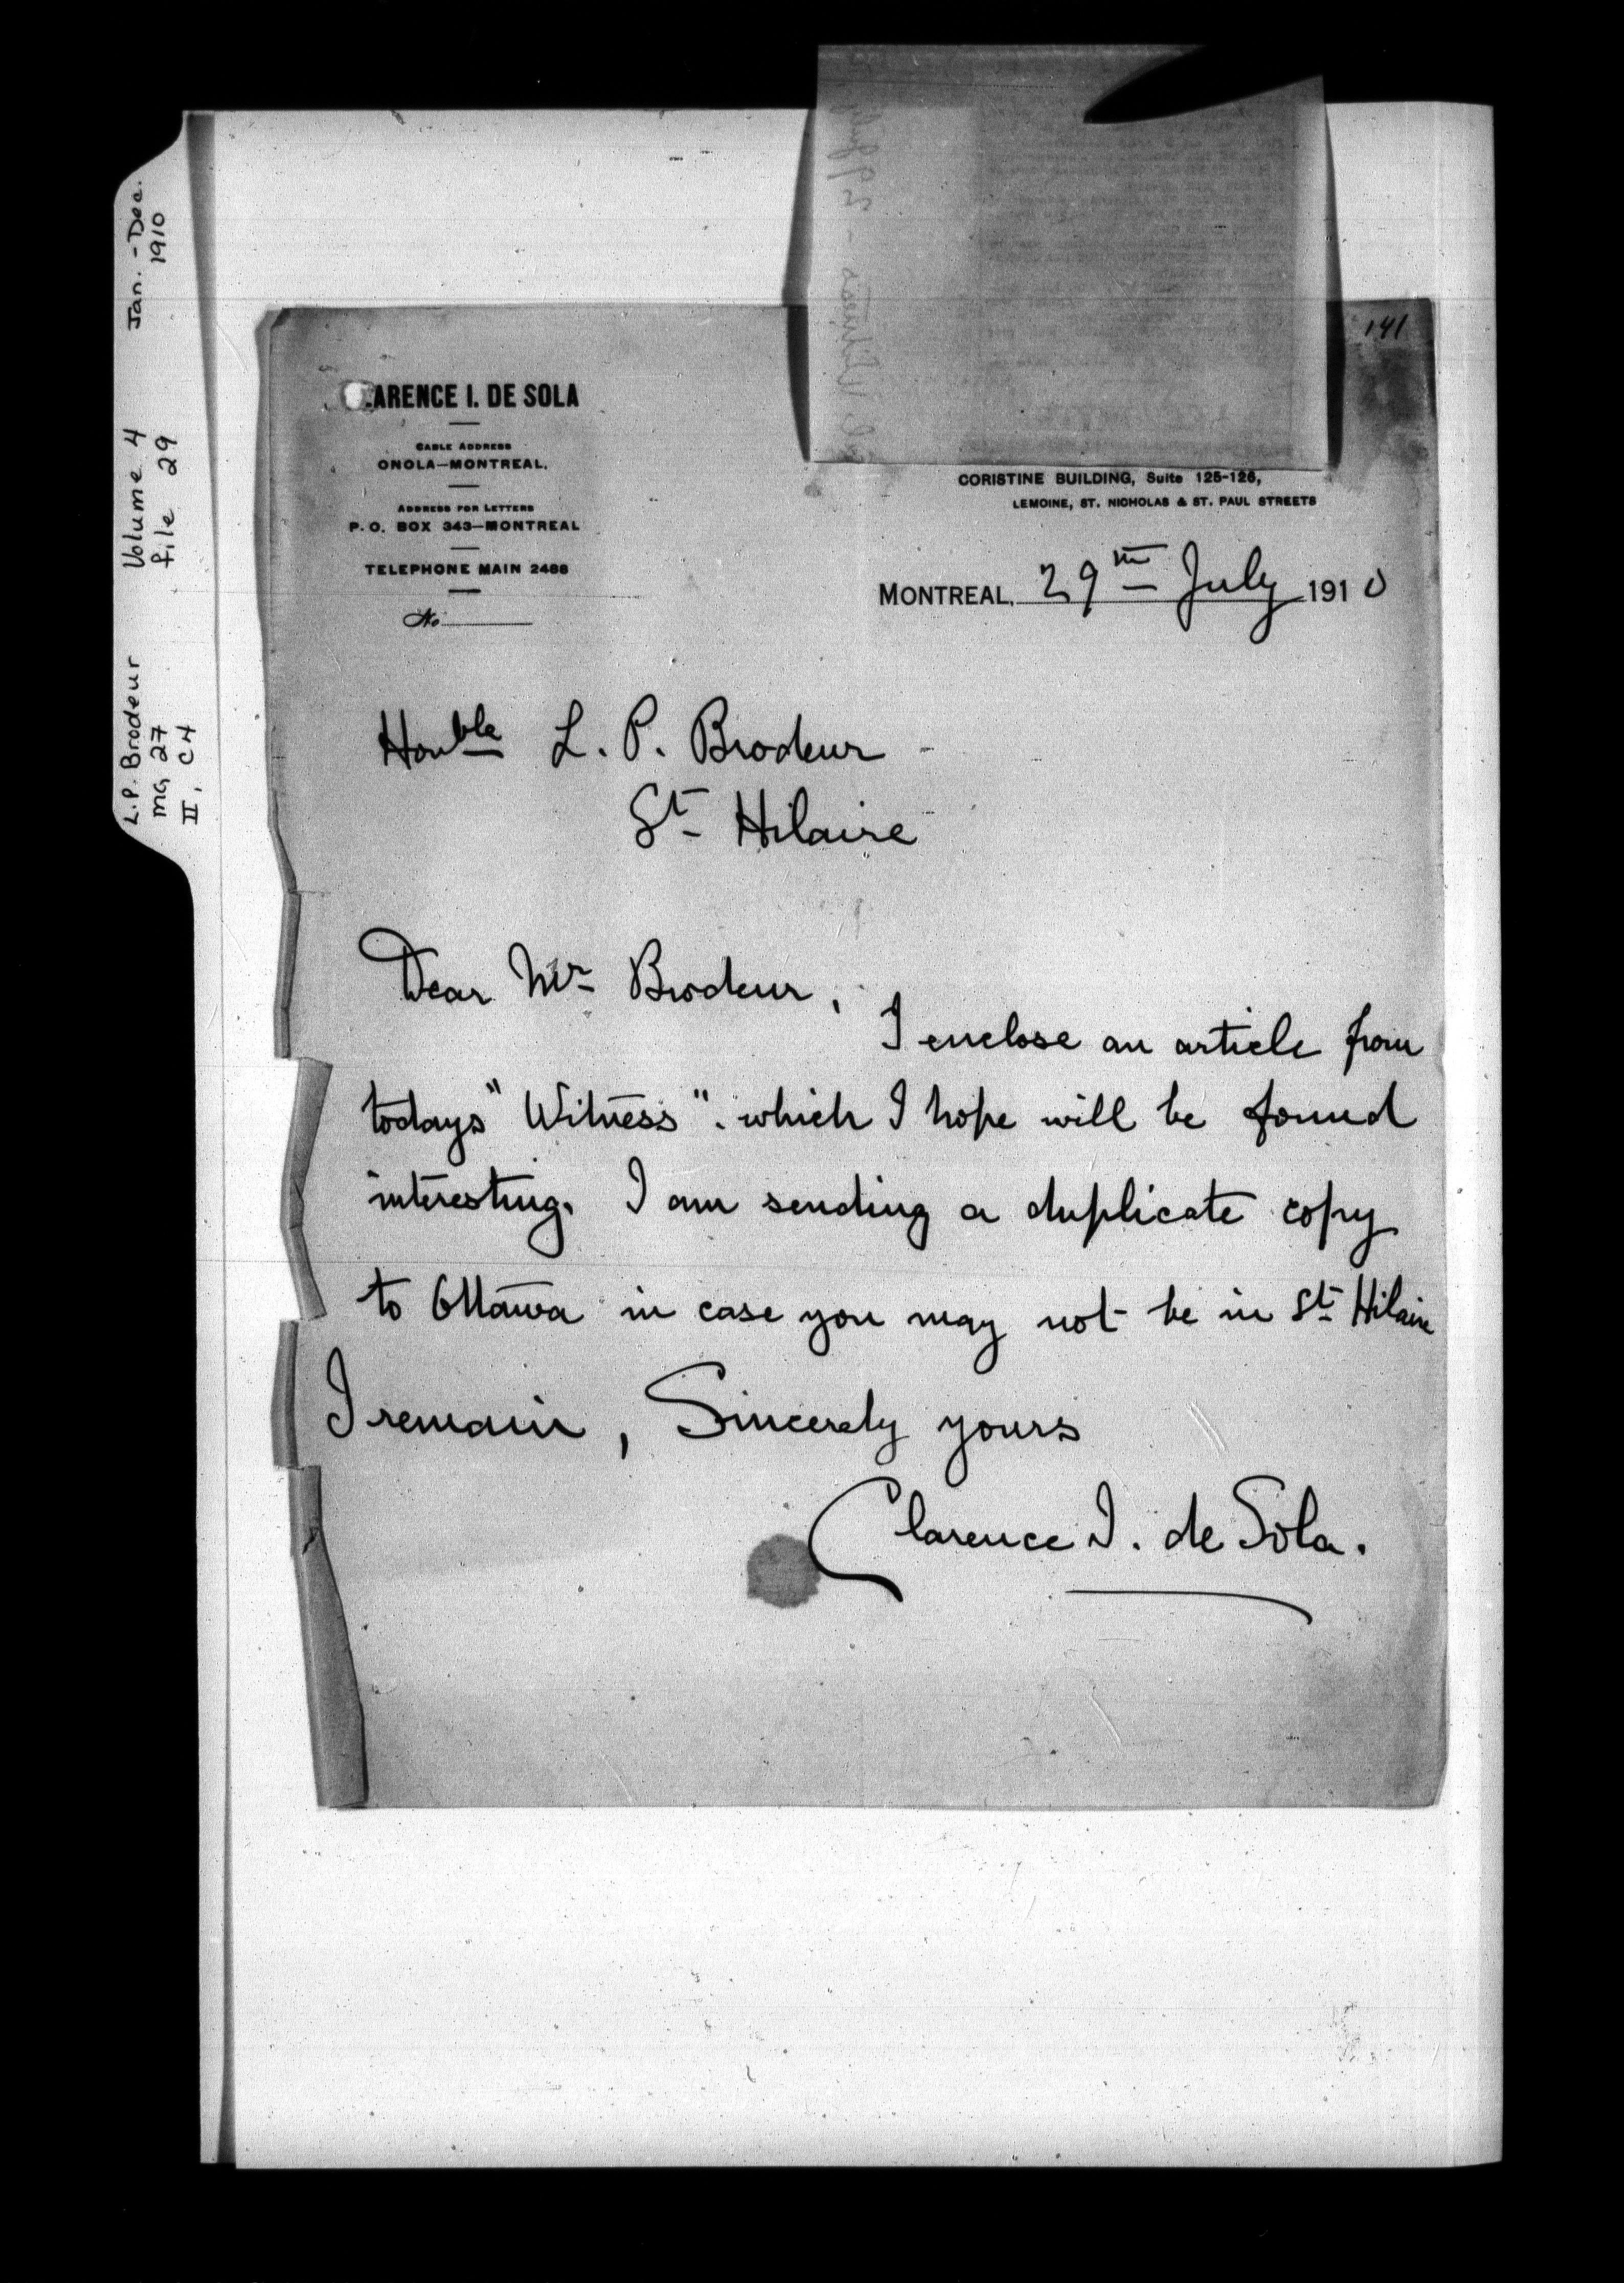 Jan. - Dec.
1910
Volume 4
file 29
L.P. Brodeur
MG 27
II, C4
141
CLARENCE I. DE SOLA
CABLE ADDRESS
ONOLA—MONTREAL.
ADDRESS FOR LETTERS
P. O. BOX 343—MONTREAL
TELEPHONE MAIN 2488
No
CORISTINE BUILDING, Suite 125-126,
LEMOINE, ST. NICHOLAS & ST. PAUL STREETS
MONTREAL, 29th July 1910
Honble L. P. Brodeur
St Hilaire
Dear Mr Brodeur,
I enclose an article from
todays "Witness". which I hope will be found
interesting. I am sending a duplicate copy
to Ottawa in case you may not be in St Hilaire
I remain, Sincerely yours
Clarence I. de Sola.